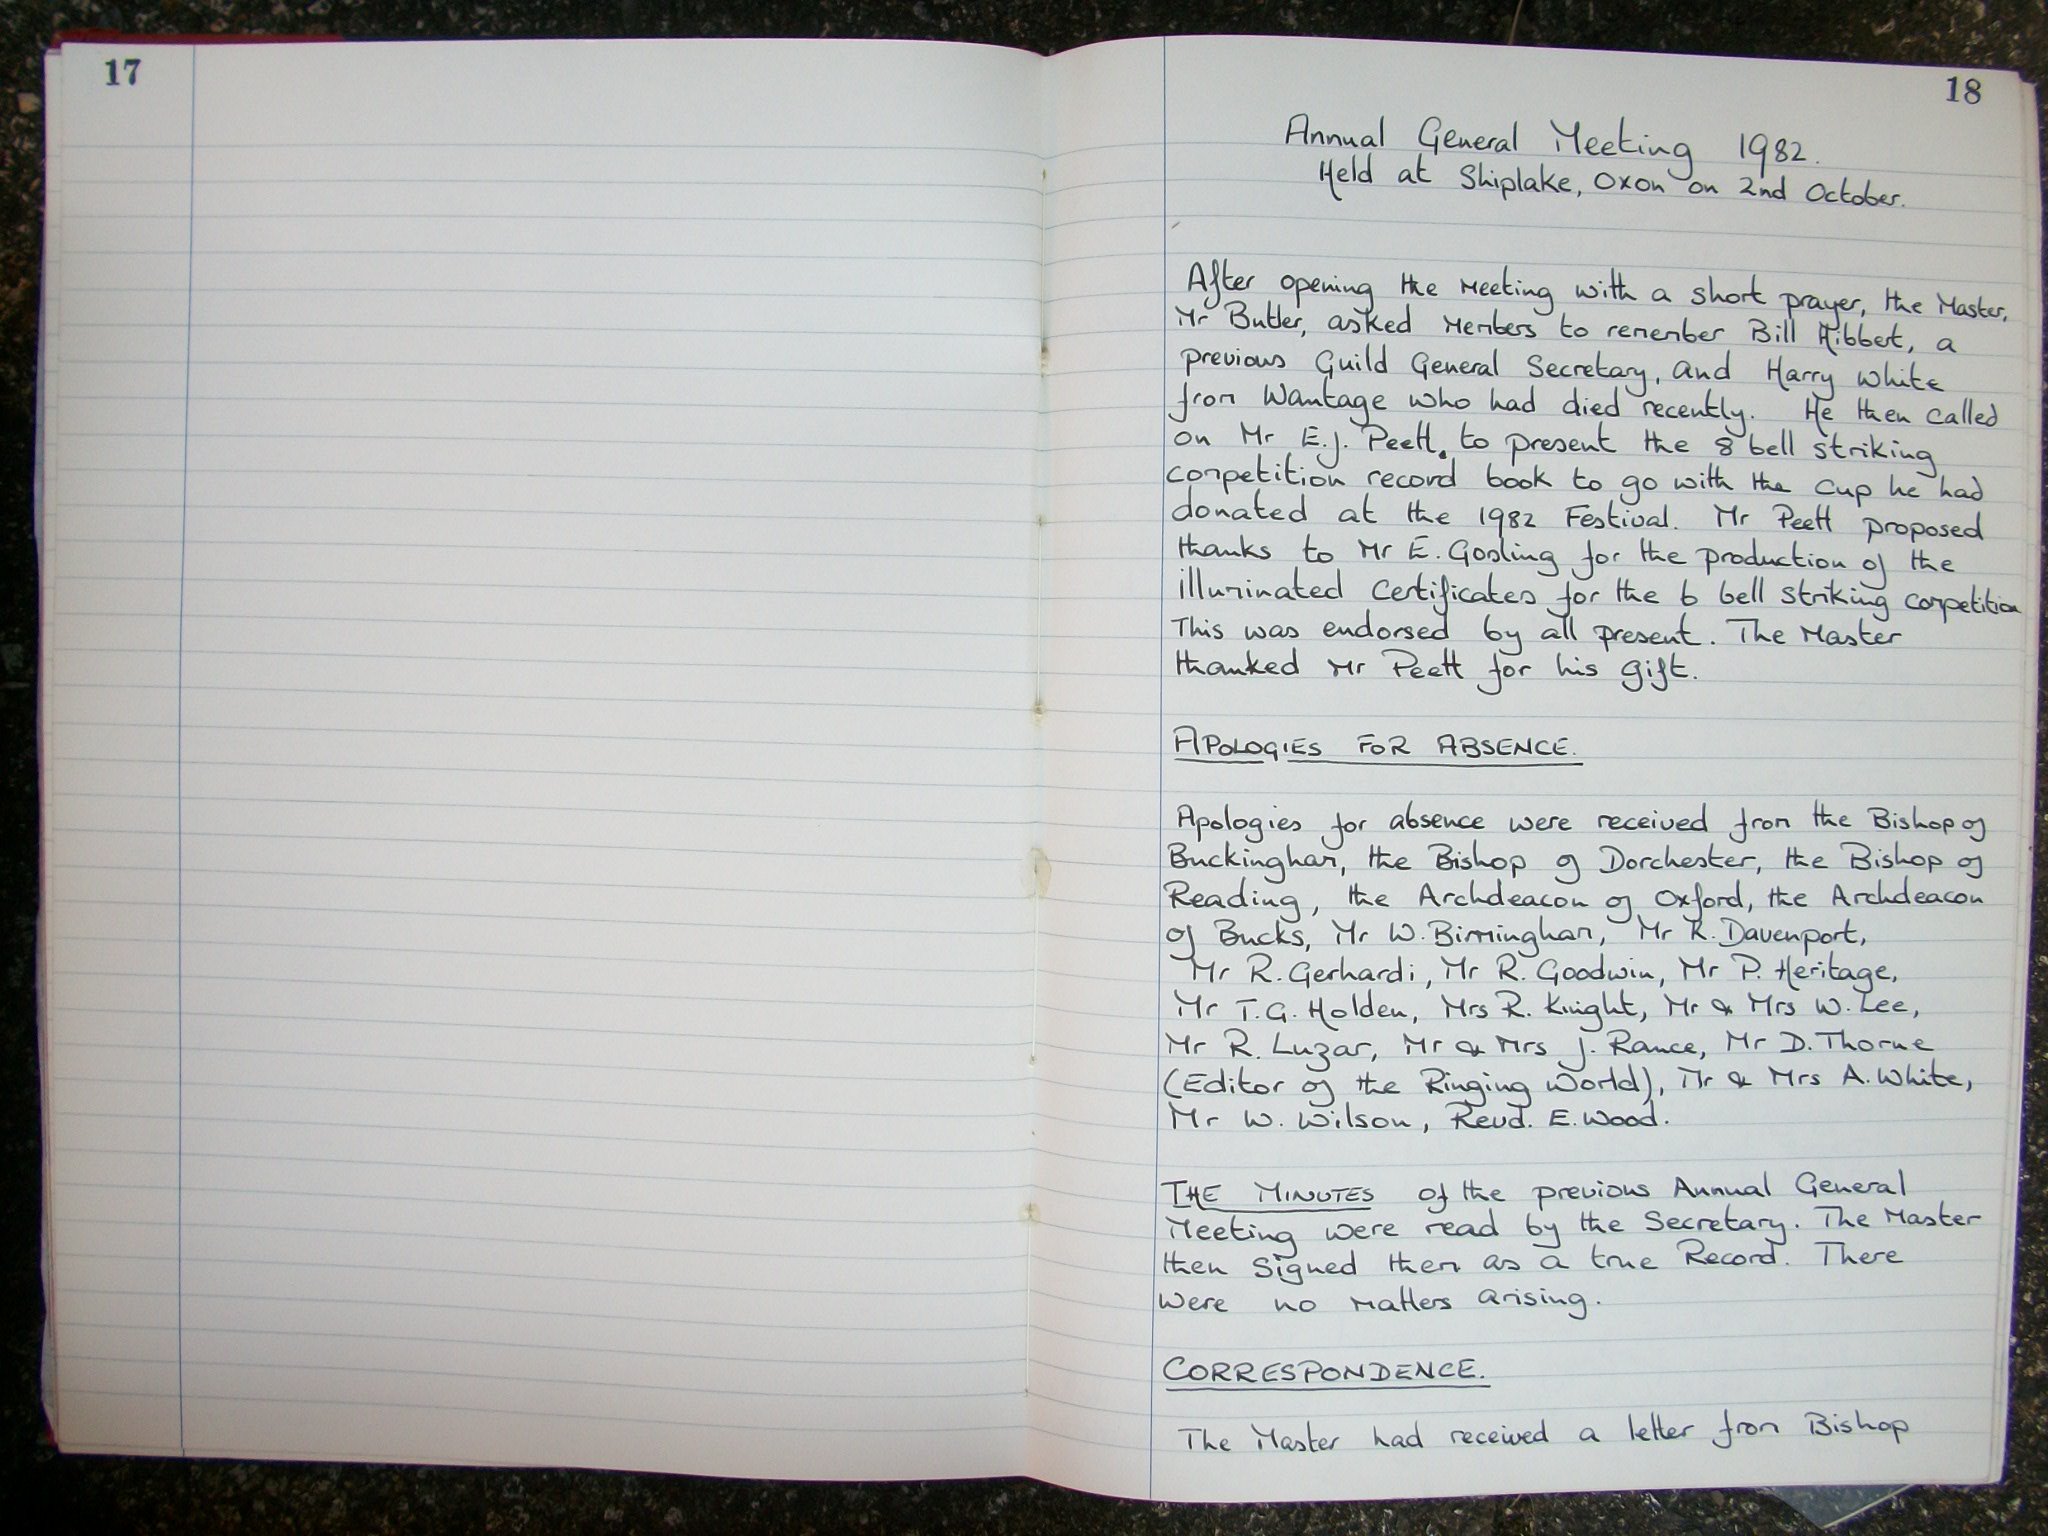 17
18
Annual General Meeting 1982.
Held at Shiplake, Oxon on 2nd October.
After opening the Meeting with a short prayer, the Master,
Mr Butler, asked Members to remember Bill Hibbert, a
previous Guild General Secretary, and Harry White
from Wantage who had died recently. He then called
on Mr E.J. Peett, to present the 8 bell striking
competition record book to go with the cup he had
donated at the 1982 Festival. Mr Peett proposed
thanks to Mr E. Gosling for the production of the
illuminated certificates for the 6 bell striking competition
This was endorsed by all present. The Master
thanked Mr Peett for his gift.
APOLOGIES FOR ABSENCE.
Apologies for absence were received from the Bishop of
Buckingham, the Bishop of Dorchester, the Bishop of
Reading, the Archdeacon of Oxford, the Archdeacon
of Bucks, Mr W. Birmingham, Mr R. Davenport,
Mr R. Gerhardi, Mr R. Goodwin, Mr P. Heritage,
Mr T.G. Holden, Mrs R. Knight, Mr & Mrs W. Lee,
Mr R. Luzar, Mr & Mrs J. Rance, Mr D. Thorne
(Editor of the Ringing World), Mr & Mrs A. White,
Mr W. Wilson, Revd. E. Wood.
THE MINUTES of the previous Annual General
Meeting were read by the Secretary. The Master
then signed them as a true Record. There
were no matters arising.
CORRESPONDENCE.
The Master had received a letter from Bishop